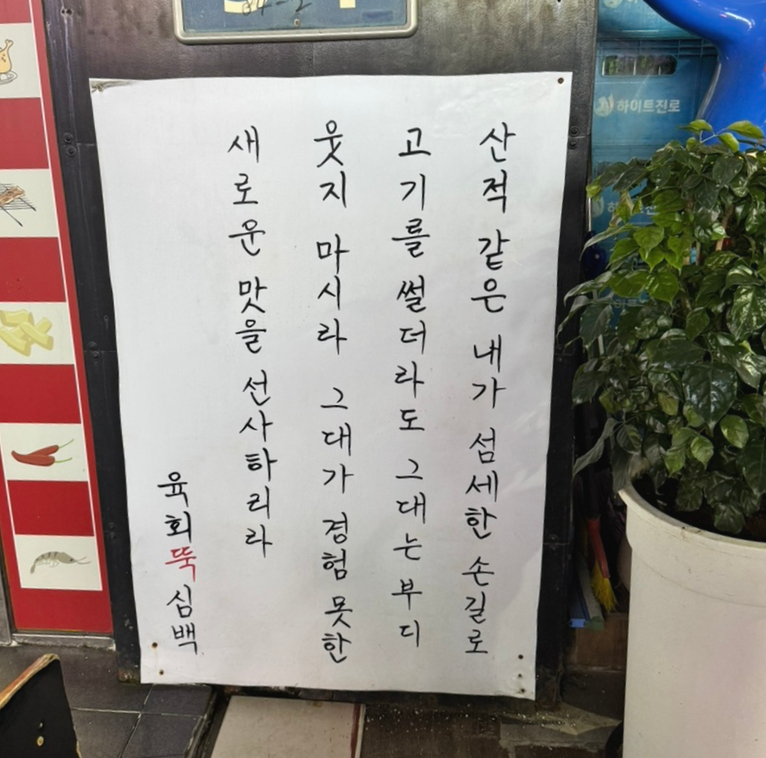 84-2
하이트진로
산적 같은 내가 섬세한 손길로
고기를 썰더라도 그대는 부디
웃지 마시라 그대가 경험 못한
새로운 맛을 선사하리라
육회뚝심백